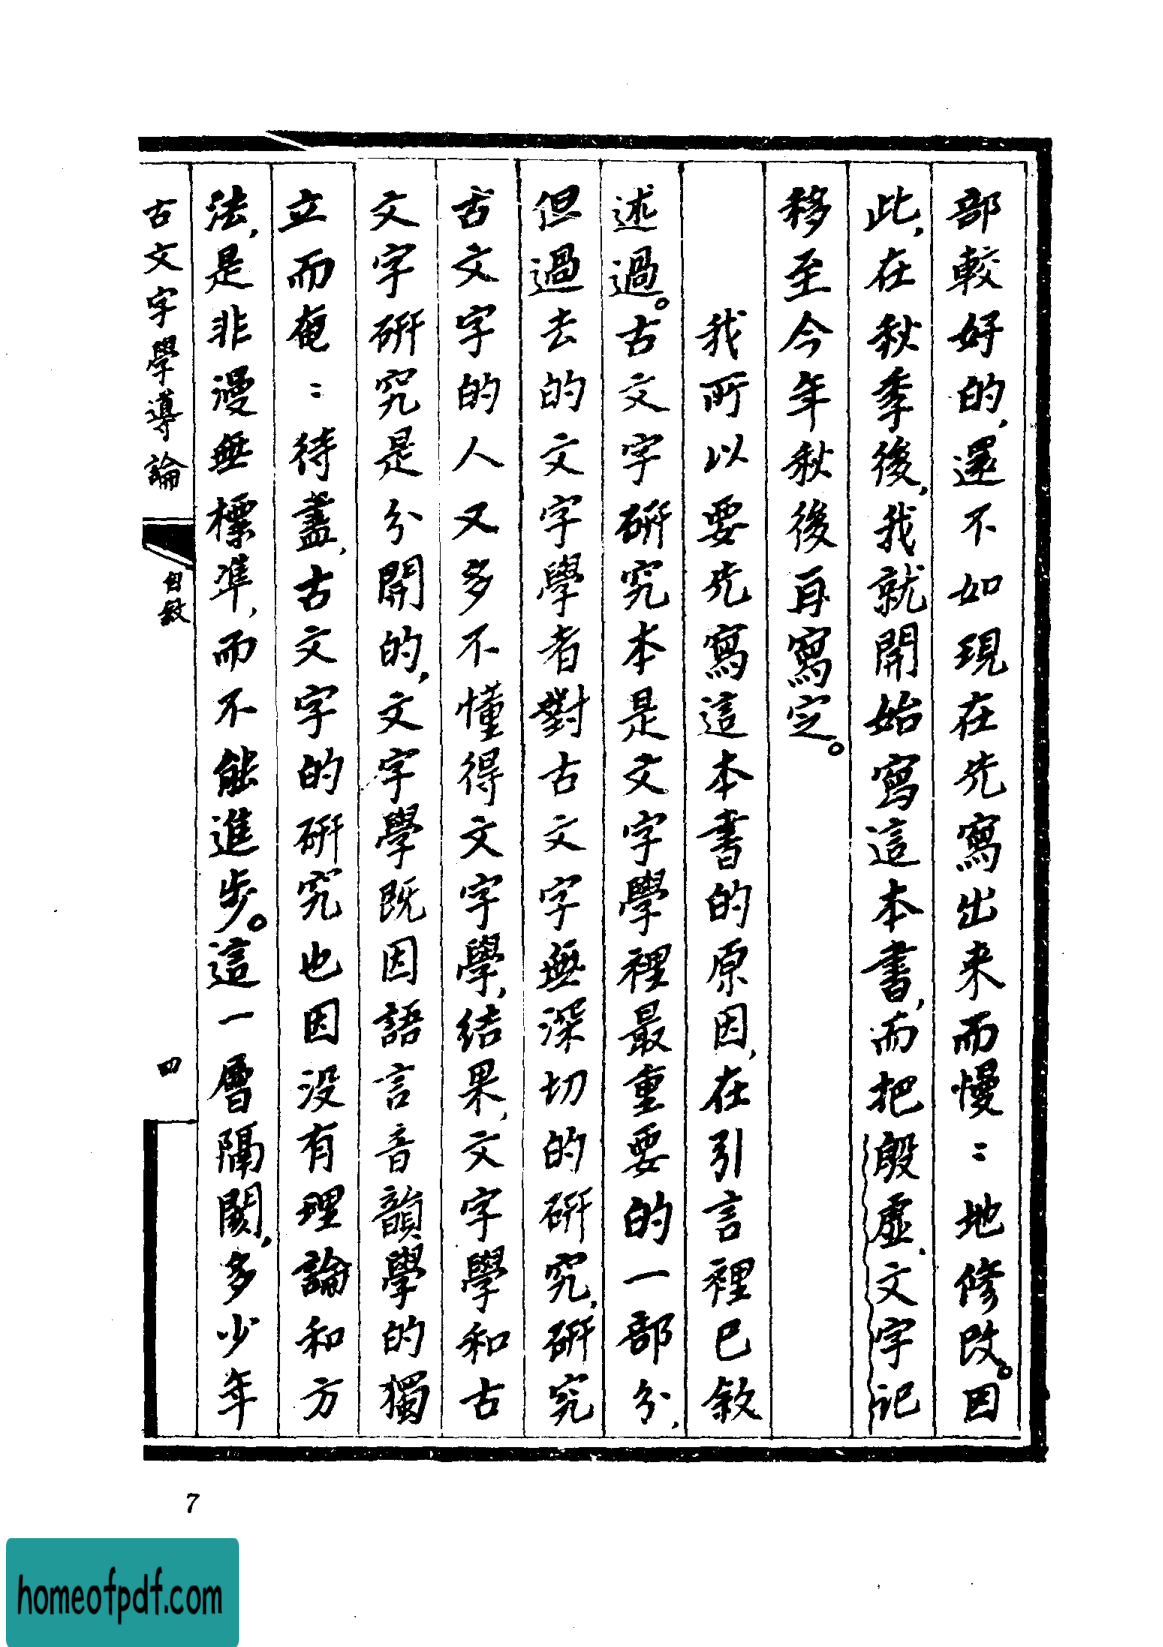 部較好的,還不如現在先寫出來而慢:地修改。因
此,在秋季後,我就開始寫這本書,而把殷虛文字記
移至今年秋後再寫定。
我所以要先寫這本書的原因,在引言裡已敘
述過。古文字研究本是文字學裡最重要的一部分,
但過去的文字學者對古文字無深切的研究,研究
古文字的人又多不懂得文字學,结果,文字學和古
文字研究是分開的,文字學既因語言音韻學的獨
立而奄:待盡,古文字的研究也因没有理論和方
法,是非漫無標準,而不能進步。這一層隔閡,多少年
古文字學導論
自敘
四
7
homeofpdf.com